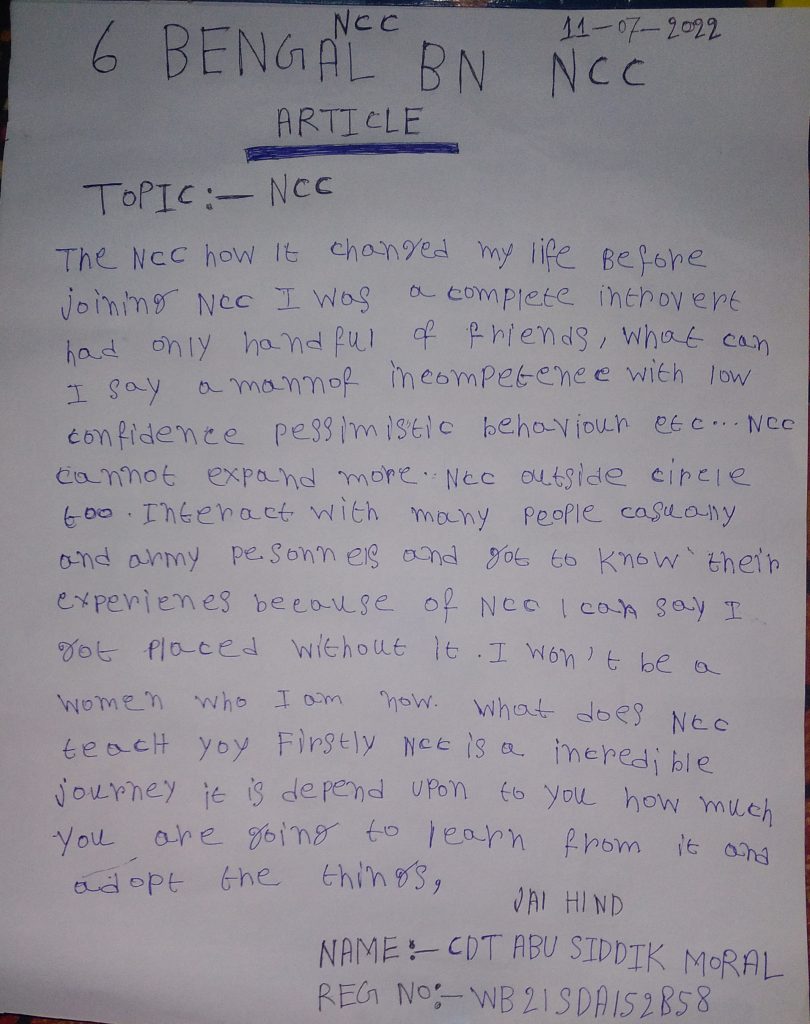 NCC
11-07-2022
6 BENGAL BN NCC
ARTICLE
TOPIC:- NCC
The NCC how it changed my life Before
joining NCC I was a complete introvert
had only handful of friends, what can
I say a mannof incompetence with low
confidence pessimistic behaviour etc... NCC
cannot expand more.. NCC outside circle
too. Interact with many people casually
and army pesonnels and got to know their
experienes because of NCC I can say I
got placed without it. I won't be a
women who I am now. What does NCC
teacH yoy Firstly NCC is a incredible
journey it is depend upon to you how much
you are going to learn from it and
adopt the things,
JAI HIND
NAME:- CDT ABU SIDDIK MORAL
REG NO:- WB21SDA152858